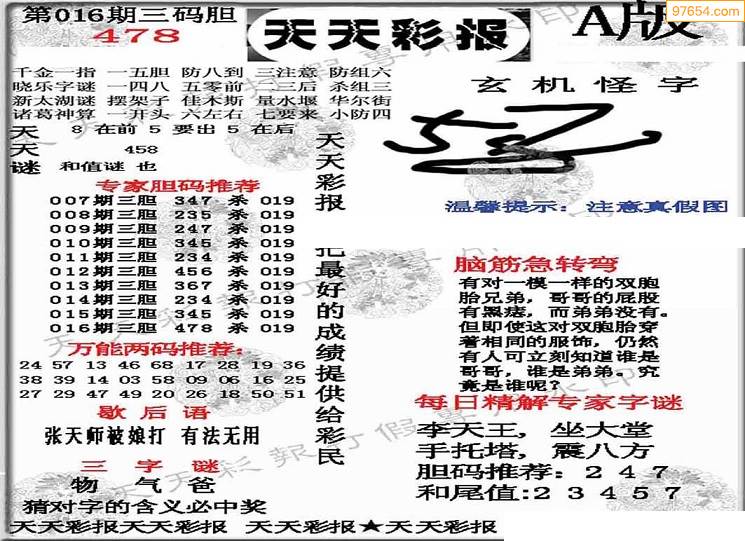 第016期三码胆
478
天天彩报
A版
97654.com
千金一指 一五胆 防八到 三注意 防组六
晓乐字谜 一四八 五零前 二三后 杀组三
新太湖谜 摆架子 佳木斯 量水堰 华尔街
诸葛神算 一开头 六左右 七要来 小防四
天 8 在前 5 要出 5 在后
天 458
谜 和值谜 也
专家胆码推荐
007期三胆 347 杀 019
008期三胆 235 杀 019
009期三胆 247 杀 019
010期三胆 345 杀 019
011期三胆 234 杀 019
012期三胆 456 杀 019
013期三胆 367 杀 019
014期三胆 234 杀 019
015期三胆 345 杀 019
016期三胆 478 杀 019
万能两码推荐:
24 57 13 46 68 17 28 19 36
38 39 14 03 58 09 06 16 25
27 29 47 49 20 26 18 50 51
歇后语
张天师被娘打 有法无用
三字谜
物 气 爸
猜对字的含义必中奖
天天彩报
把最好的成绩提供给彩民
玄机怪字
温馨提示: 注意真假图
脑筋急转弯
有对一模一样的双胞
胎兄弟，哥哥的屁股
有黑痣，而弟弟没有。
但即使这对双胞胎穿
着相同的服饰，仍然
有人可立刻知道谁是
哥哥，谁是弟弟。究
竟是谁呢?
每日精解专家字谜
李天王, 坐大堂
手托塔, 震八方
胆码推荐: 2 4 7
和尾值:2 3 4 5 7
天天彩报天天彩报 天天彩报★天天彩报